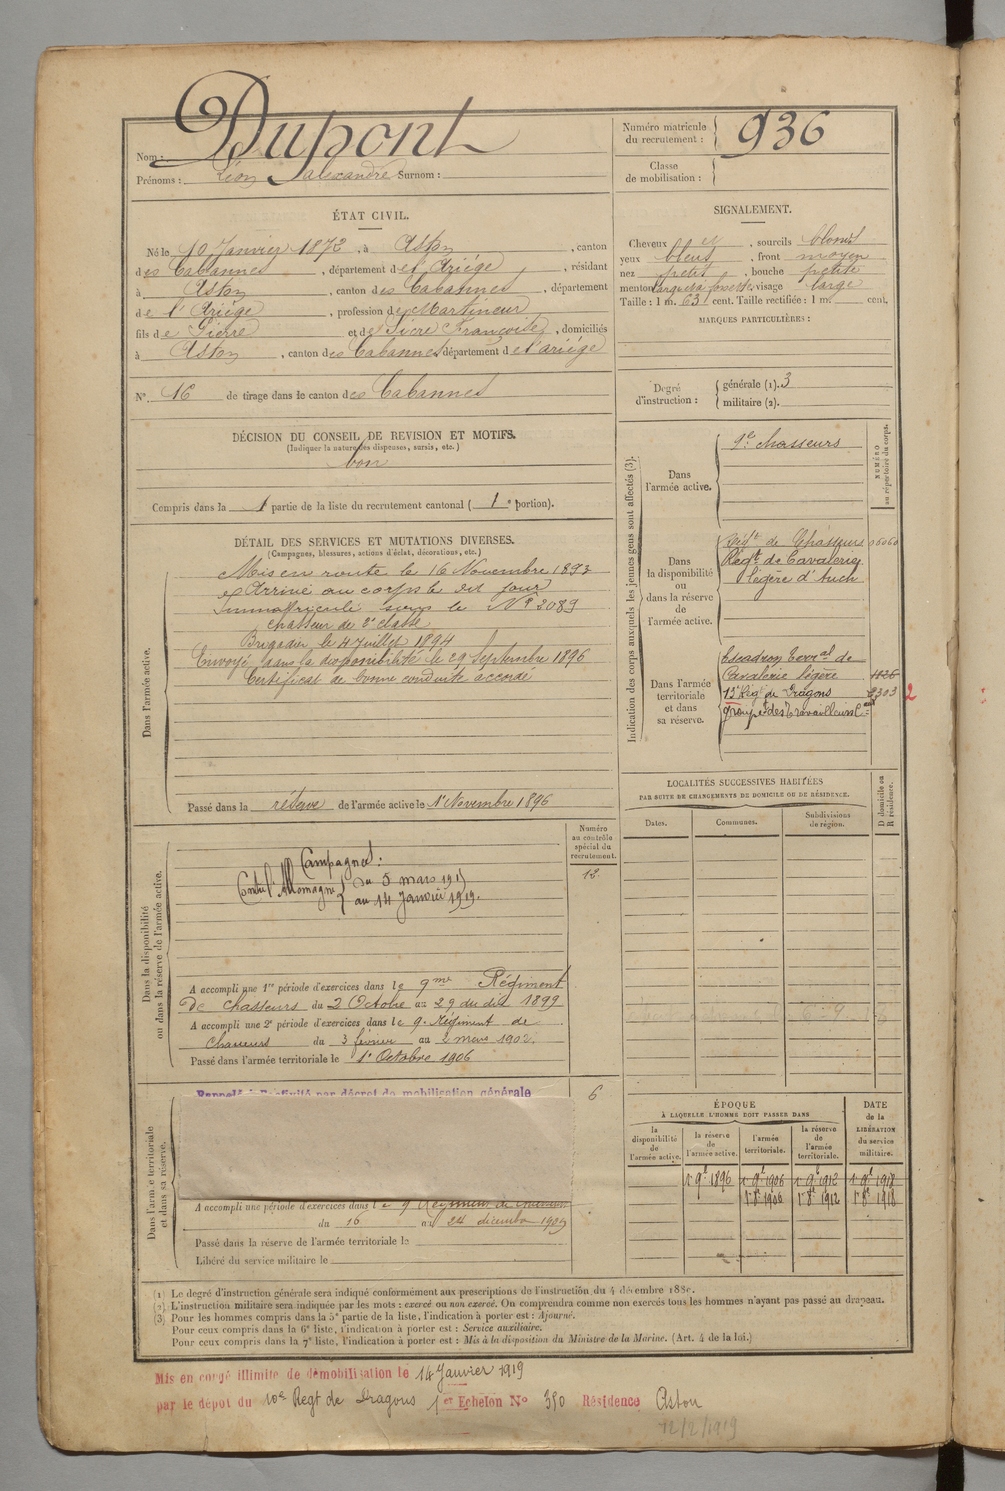 Nom : Dupont
Prénoms : Léon alexandre Surnom :
Numéro matricule du recrutement : 936
Classe de mobilisation :
ÉTAT CIVIL.
Né le 10 Janvier 1872, à Aston, canton
des Cabannes, département de l'Ariége, résidant
à Aston, canton des Cabannes, département
de l'Ariége, profession de Martineur
fils de Pierre et de Sicre Françoise, domiciliés
à Aston, canton des Cabannes département de l'ariége
N° 16 de tirage dans le canton des Cabannes
DÉCISION DU CONSEIL DE REVISION ET MOTIFS.
(Indiquer la nature des dispenses, sursis, etc.)
bon
Compris dans la 1 partie de la liste du recrutement cantonal (1e portion).
SIGNALEMENT.
Cheveux et, sourcils blonds
yeux bleus, front moyen
nez petit, bouche petite
menton large à fossette, visage large
Taille : 1 m. 63 cent. Taille rectifiée : 1 m. cent.
MARQUES PARTICULIÈRES :
Degré d'instruction :
générale (1). 3
militaire (2).
DÉTAIL DES SERVICES ET MUTATIONS DIVERSES.
(Campagnes, blessures, actions d'éclat, décorations, etc.)
Dans l'armée active.
Mis en route le 16 Novembre 1893
et Arrivé au corps le dit jour
Immatriculé sous le N° 2089
chasseur de 2e classe
Brigadier le 4 Juillet 1894
Envoyé dans la disponibilité le 29 Septembre 1896
Certificat de bonne conduite accordé
Passé dans la réserve de l'armée active le 1er Novembre 1896
Indication des corps auxquels les jeunes gens sont affectés (3).
NUMÉRO au répertoire du corps.
Dans l'armée active.
9e chasseurs
Dans la disponibilité ou dans la réserve de l'armée active.
Régt de Chasseurs
Régt de Cavalerie
légère d'Auch
Dans l'armée territoriale et dans sa réserve.
Escadron Terral de
Cavalerie légère 1626
13e Régt de Dragons 2303 2
Groupt des Travailleurs
LOCALITÉS SUCCESSIVES HABITÉES
PAR SUITE DE CHANGEMENTS DE DOMICILE OU DE RÉSIDENCE.
Dates. Communes. Subdivisions de région. D domicile ou R résidence.
Dans la disponibilité ou dans la réserve de l'armée active.
Numéro au contrôle spécial du recrutement.
12.
Campagnes :
Contre l'Allemagne du 5 mars 191
au 14 Janvier 1919.
A accompli une 1re période d'exercices dans le 9me Régiment
de chasseurs du 2 Octobre au 29 du dit 1899
A accompli une 2e période d'exercices dans le 9e Régiment de
chasseurs du 3 février au 2 mars 1902.
Passé dans l'armée territoriale le 1er Octobre 1906
Dans l'armée territoriale et dans sa réserve.
Rappelé à l'activité par décret de mobilisation générale
6
A accompli une période d'exercices dans le 9 Régiment de
du 16 au 24 décembre 1909
Passé dans la réserve de l'armée territoriale le
Libéré du service militaire le
ÉPOQUE
À LAQUELLE L'HOMME DOIT PASSER DANS
DATE de la LIBÉRATION du service militaire.
la disponibilité de l'armée active. la réserve de l'armée active. l'armée territoriale. la réserve de l'armée territoriale.
1er 9e 1896 1er 9e 1906 1er 9e 1912 1er 9e 1918
1er 8e 1906 1er 8e 1912 1er 8e 1918
(1) Le degré d'instruction générale sera indiqué conformément aux prescriptions de l'instruction du 4 décembre 188.
(2) L'instruction militaire sera indiquée par les mots : exercé ou non exercé. On comprendra comme non exercés tous les hommes n'ayant pas passé au drapeau.
(3) Pour les hommes compris dans la 5e partie de la liste, l'indication à porter est : Ajourné.
Pour ceux compris dans la 6e liste, l'indication à porter est : Service auxiliaire.
Pour ceux compris dans la 7e liste, l'indication à porter est : Mis à la disposition du Ministre de la Marine. (Art. 4 de la loi.)
Mis en congé illimité de démobilisation le 14 Janvier 1919
par le dépôt du 10e Regt de Dragons 1er Echelon N° 350 Résidence Aston
12/2/1919